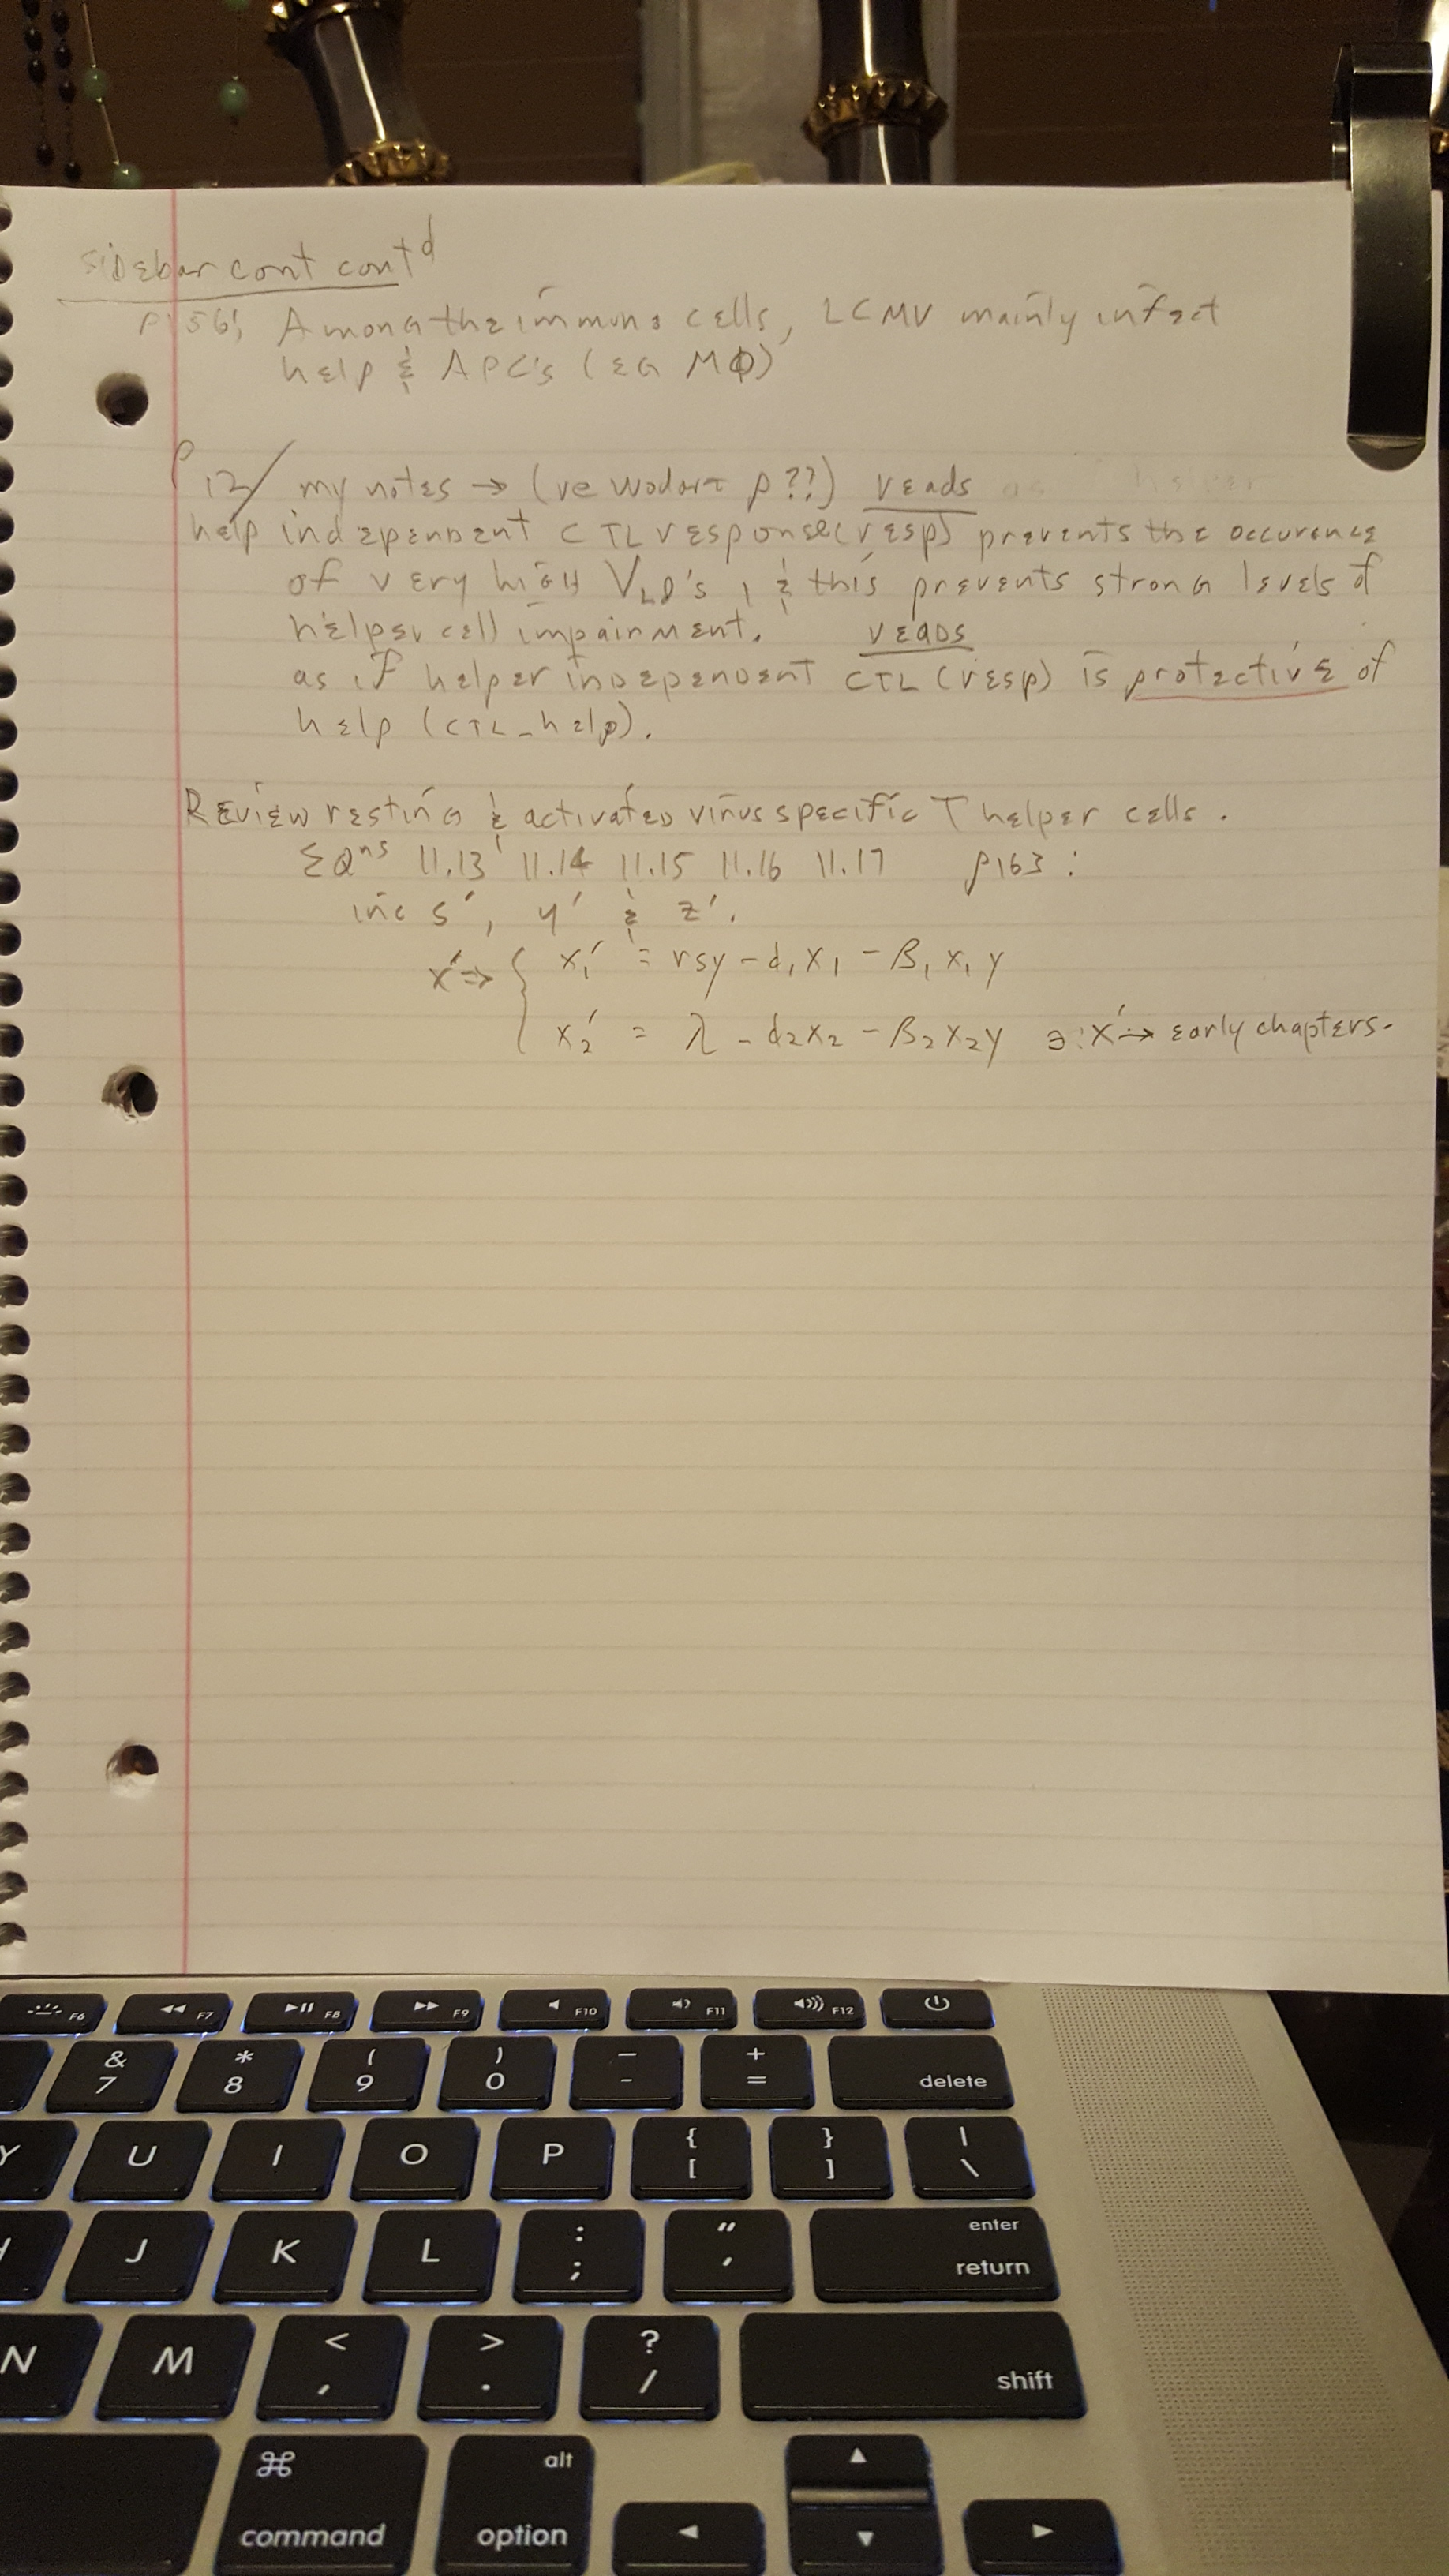 sidebar cont cont d
p156; Among the immune cells, LCMV mainly infect
help & APC's (EG MΦ)
p12/ my notes → (re Wodarz p??) reads
help independent CTL response (resp) prevents the occurence
of very high VLD's, & this prevents strong levels of
helper cell impairment. reads
as if helper independent CTL (resp) is protective of
help (CTL-help).
Review resting & activated virus specific T helper cells.
EQns 11.13 11.14 11.15 11.16 11.17 p163:
inc s', y' & z'.
x' ⇒ { x₁' = rsy - d₁x₁ - β₁x₁y
x₂' = λ - d₂x₂ - β₂x₂y ∋: x' → early chapters.
F6 F7 F8 F9 F10 F11 F12
& 7 * 8 ( 9 ) 0 — - + = delete
Y U I O P { [ } ] | \
J K L : ; " ' enter return
N M < , > . ? / shift
⌘ command alt option